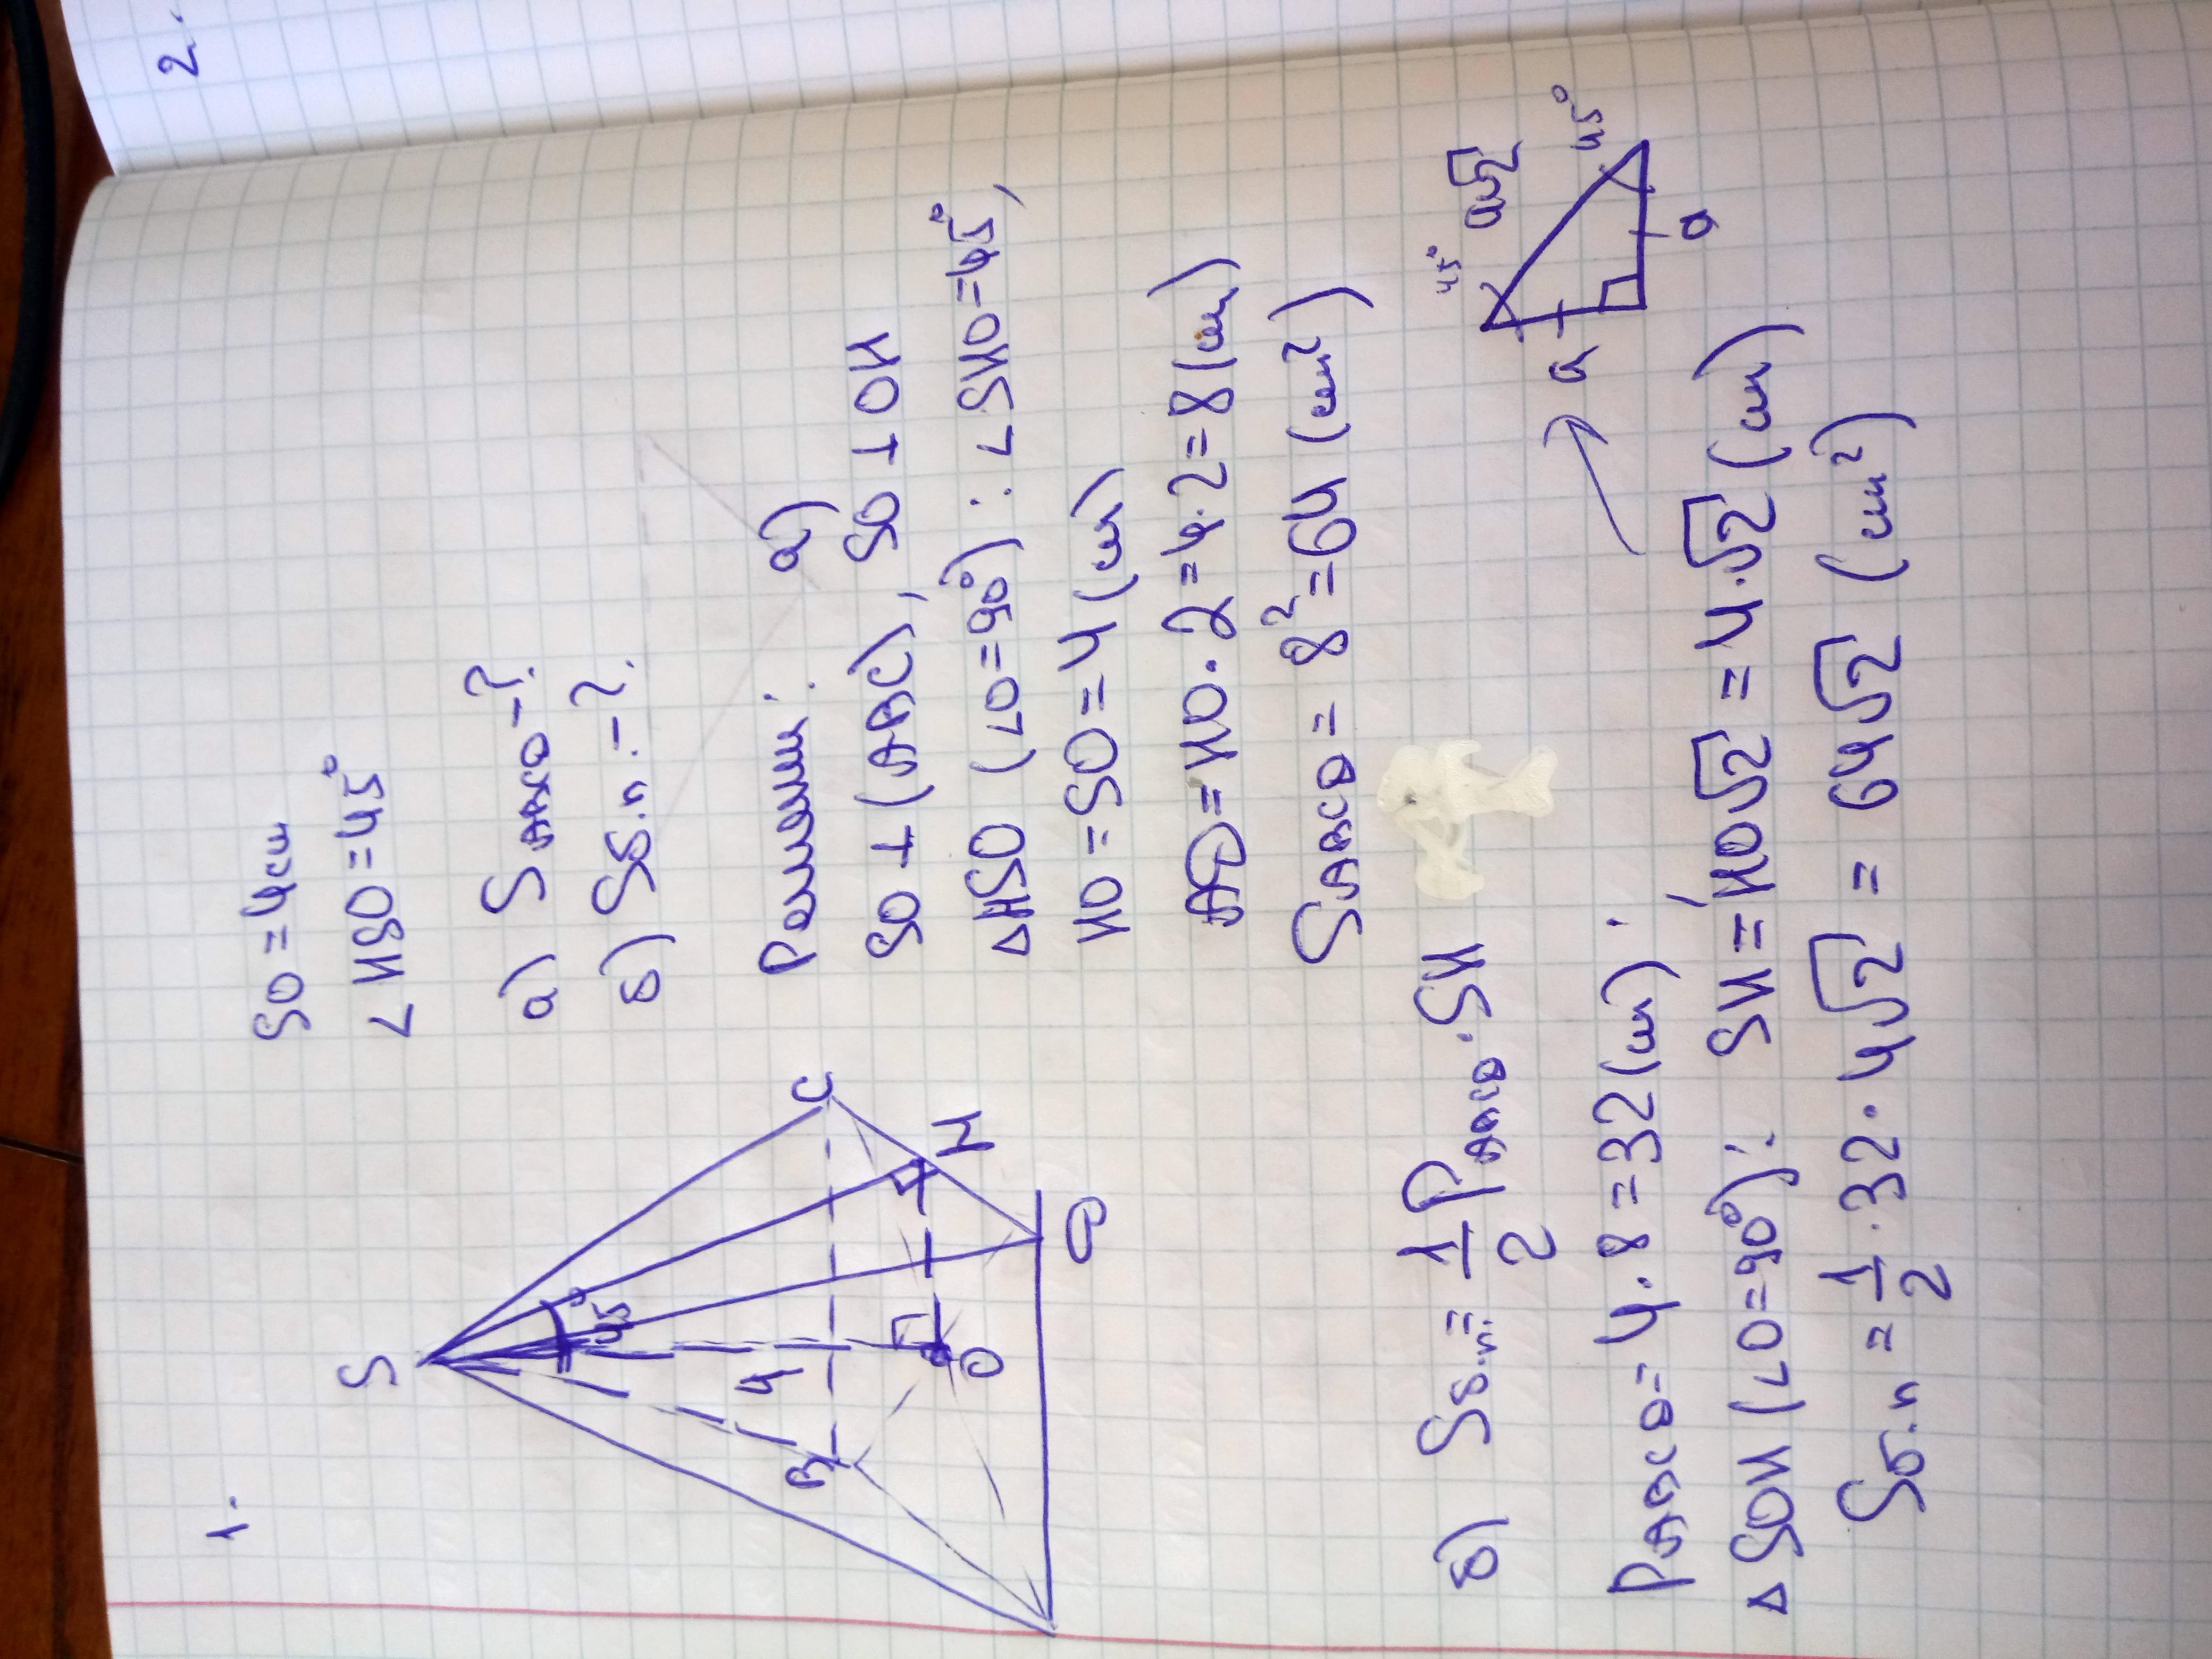 1.
S
45°
4
B
C
H
O
D
SO = 4 см
∠ HSO = 45°
а) S ABCD - ?
б) Sб.п. - ?
а)
SO ⊥ (ABC), SO ⊥ OH
△HSO (∠O = 90°) : ∠ SHO = 45°,
HO = SO = 4 (см)
AD = HO · 2 = 4 · 2 = 8 (см)
SABCD = 8² = 64 (см²)
б) Sб.п. = 1/2 PABCD · SH
PABCD = 4 · 8 = 32 (см)
△ SOH (∠O = 90°): SH = HO√2 = 4 · √2 (см)
Sб.п = 1/2 · 32 · 4√2 = 64√2 (см²)
45°
a√2
45°
a
a
2.